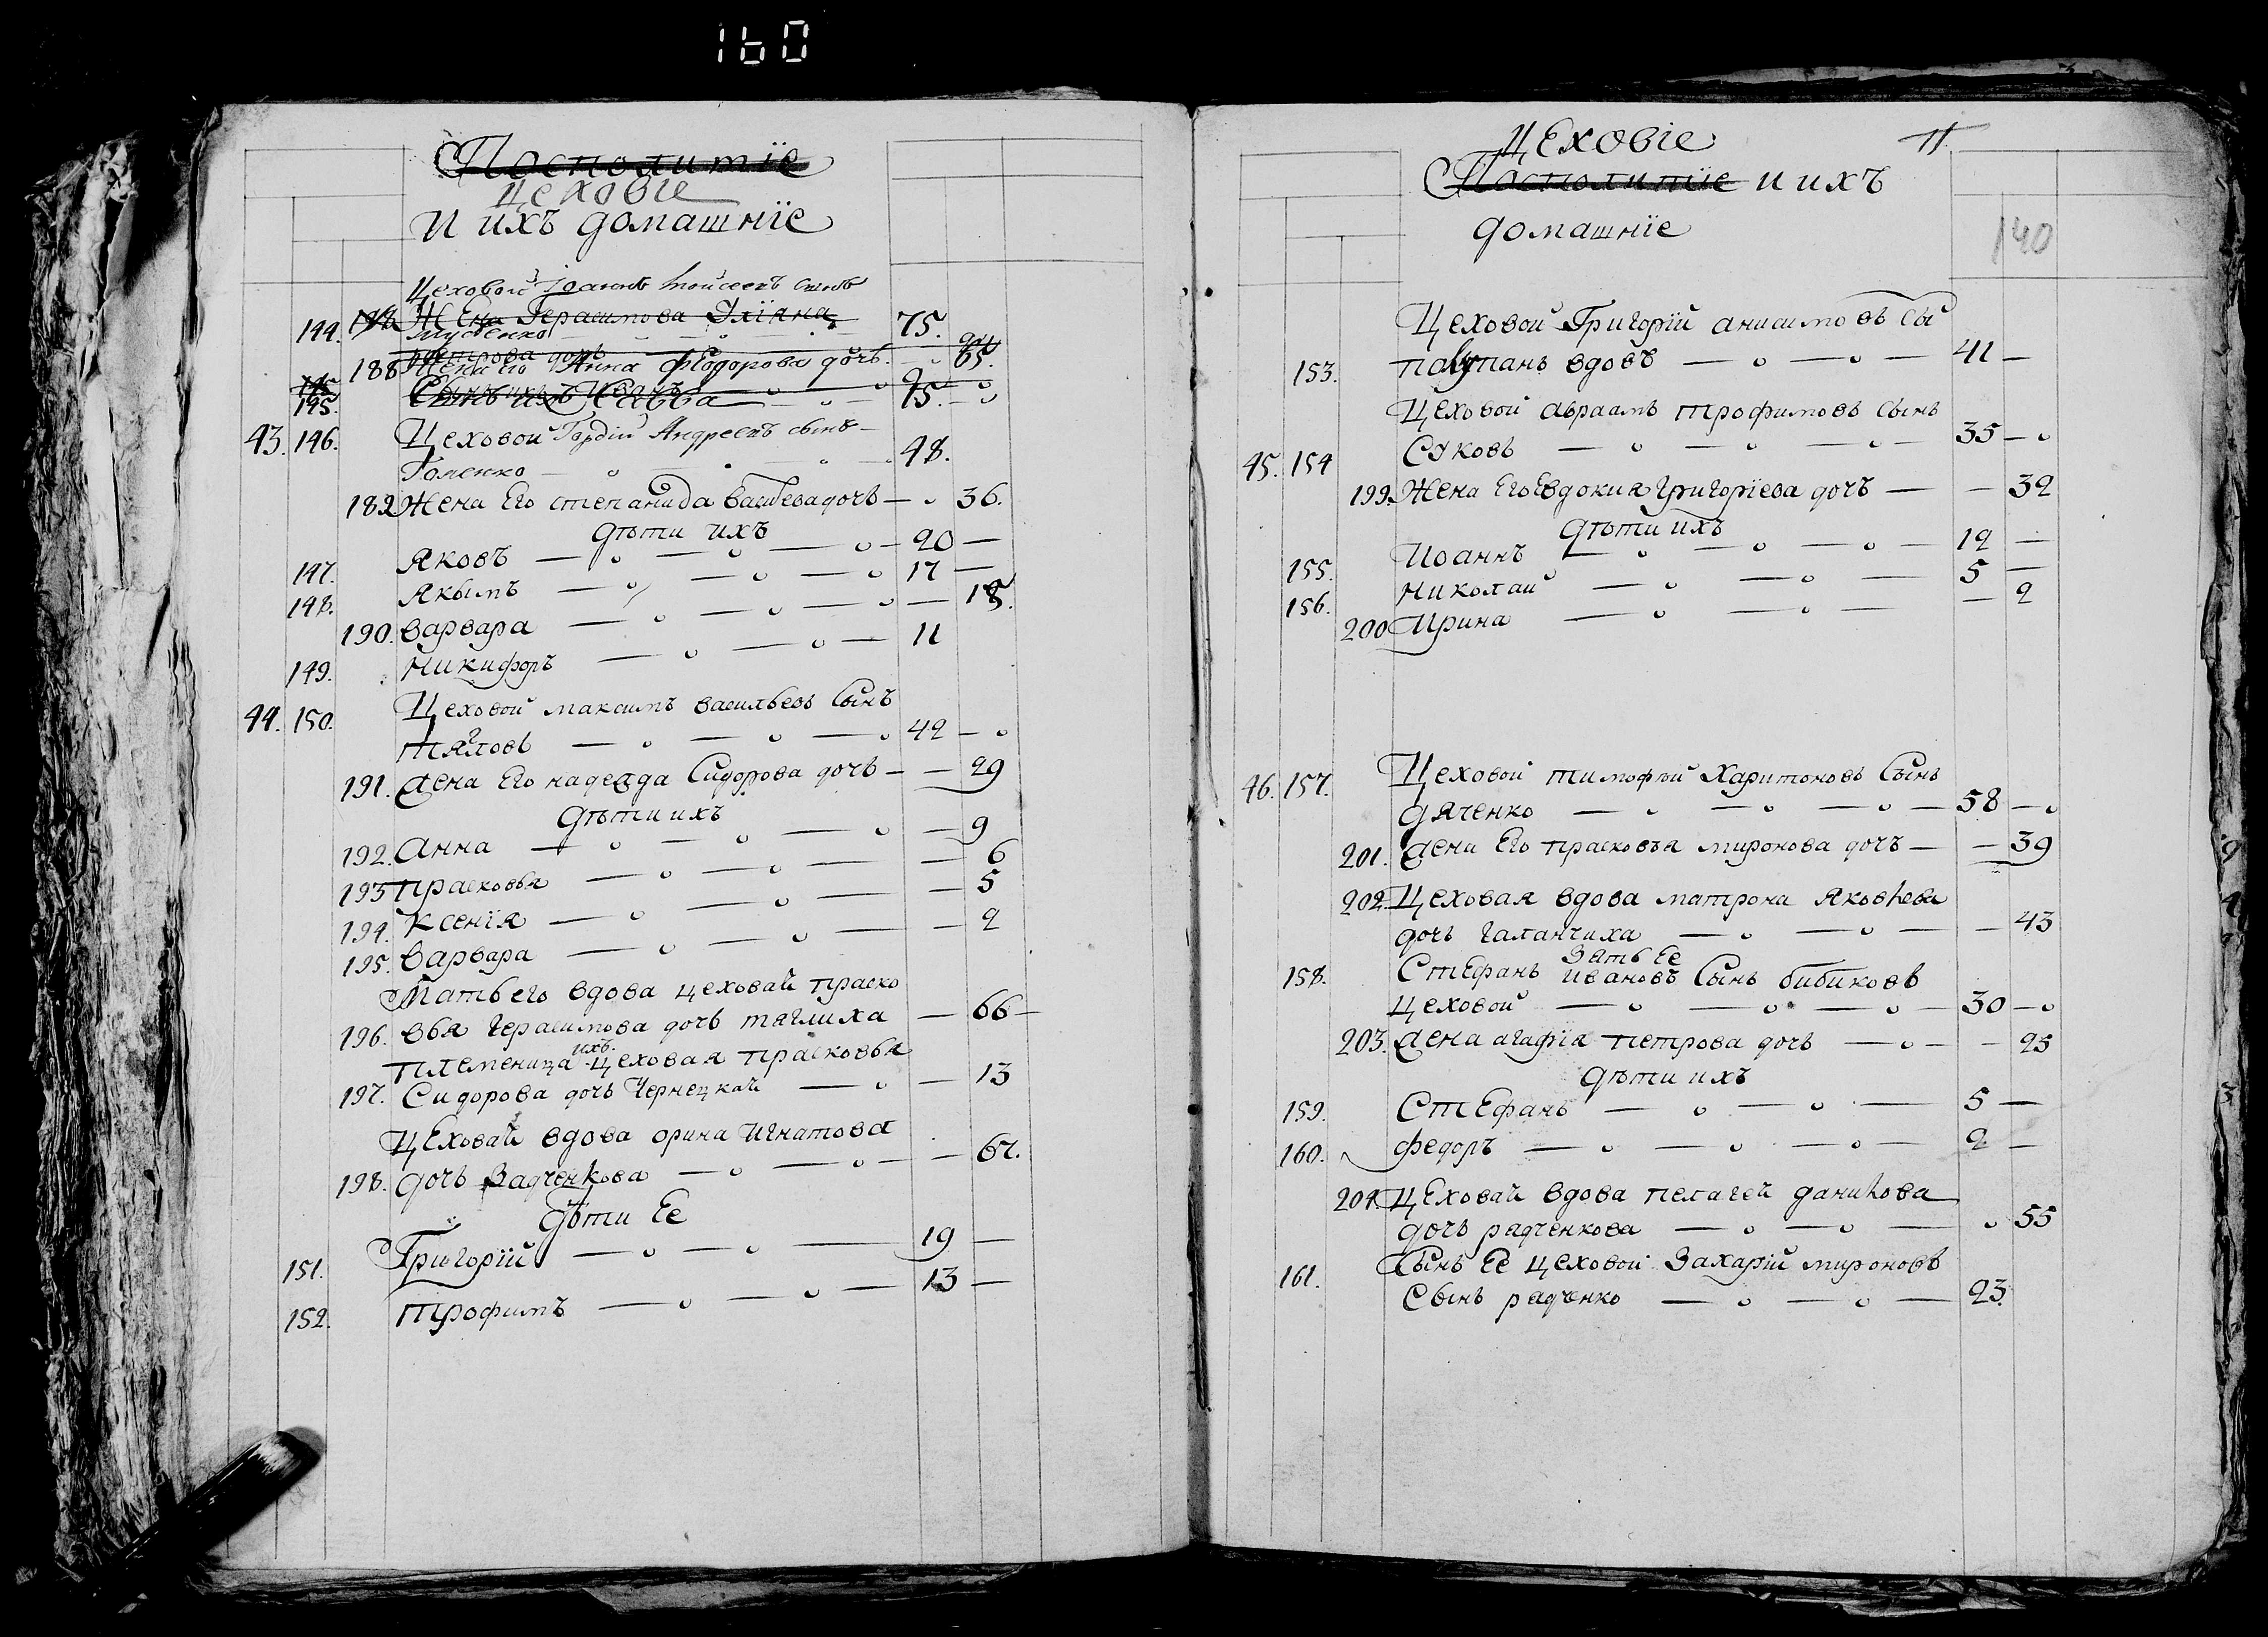 160
Посполитїе
цеховїе
И ихъ домашнїе
Цеховой Іоаннъ Моисеевъ сынъ
144. 188 Жена Герасимова Улїяна 75.
Мусіенко
Петрова дочь
188 Жена его Анна Федорова дочь 65.
145. Сынъ ихъ Савва 15.
43. 146. Цеховой Гордїй Андреевъ сынъ
Гоменко 48.
189 Жена Его степанида Васильева дочь 36.
дѣти ихъ
147. Яковъ 20
148. Якымъ 17
190. Варвара 15.
149. Никифоръ 11
44. 150. Цеховой максимъ васильевъ Сынъ
тягловъ 42
191. Жена Его надежда Сидорова дочь 29
дѣти ихъ
192. Анна 9
193 Прасковья 6
194. Ксенїя 5
195. Варвара 2
Мать его вдова цеховай праско
196. вья Герасимова дочь тяглиха 66
племеница ихъ цеховая прасковья
197. Сидорова дочь Чернецкай 13
ЦЕховай вдова орина Игнатова
198. дочь Задченкова 67.
дѣти Ее
151. Григорїй 19
152. Трофимъ 13
ЦЕховїе 11
Посполитїе и ихъ
домашнїе
140
Цеховой Григорїй анисимовъ сы
153. полупанъ вдовъ 41
Цеховой авраамъ трофимовъ сынъ
45. 154 Суковъ 35
199. Жена Его Евдокия Григорїева дочь 32
дѣти ихъ
155. Иоаннъ 12
156. Николай 5
200 Ирина 2
46. 157. Цеховой тимофѣй Харитоновъ Сынъ
дяченко 58
201. Жена Его прасковья миронова дочь 39
202. Цеховая вдова матрона Яковлева
дочь Галанчиха 43
Зять Ее
158. СтЕфанъ Ивановъ Сынъ бибиковъ
цеховой 30
203. Жена агафїя петрова дочь 25
дѣти ихъ
159. СтЕфанъ 5
160. Федоръ 2
204. ЦЕховай вдова пелагей данилова
дочь радченкова 55
161. Сынъ Ее цеховой Захарїй мироновъ
Сынъ радченко 23.